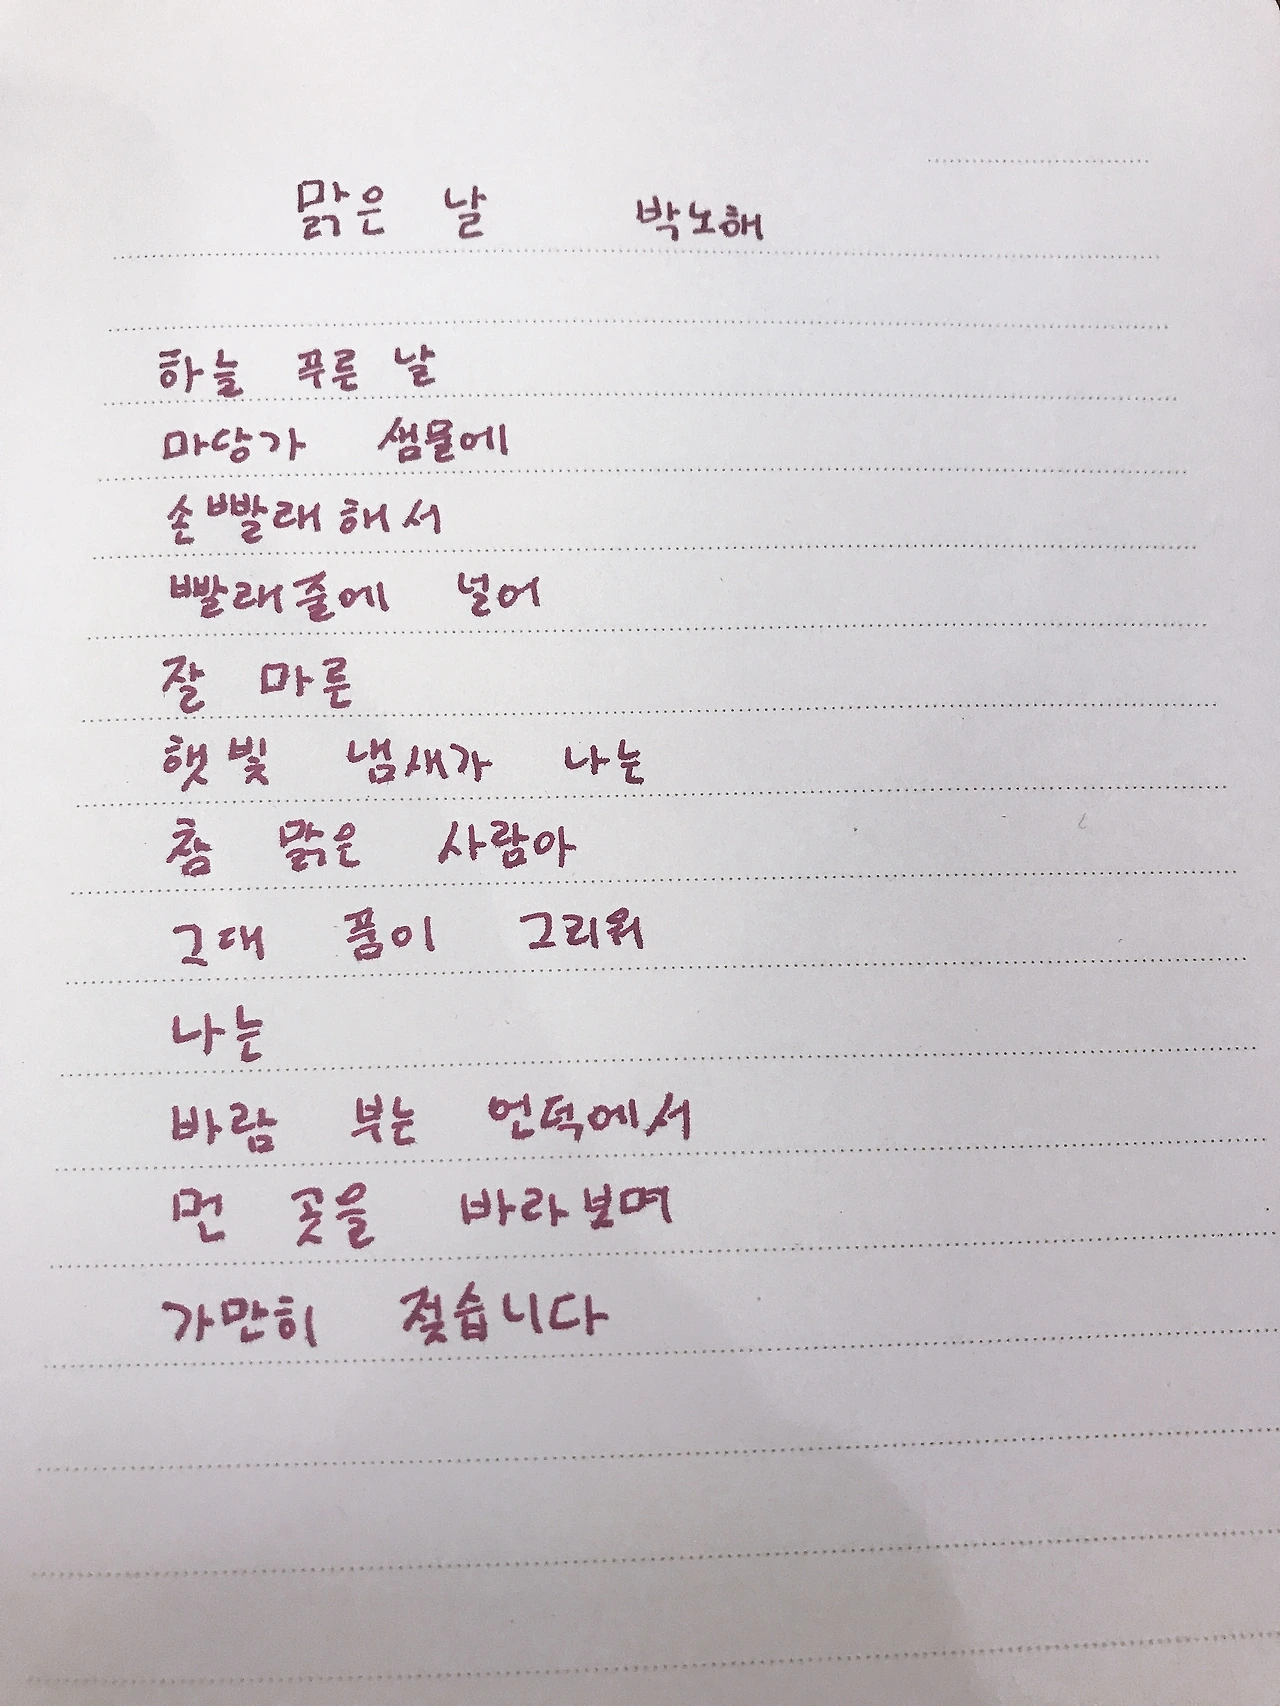 맑은 날 박노해
하늘 푸른 날
마당가 샘물에
손빨래해서
빨래줄에 널어
잘 마른
햇빛 냄새가 나는
참 맑은 사람아
그대 품이 그리워
나는
바람 부는 언덕에서
먼 곳을 바라보며
가만히 젖습니다